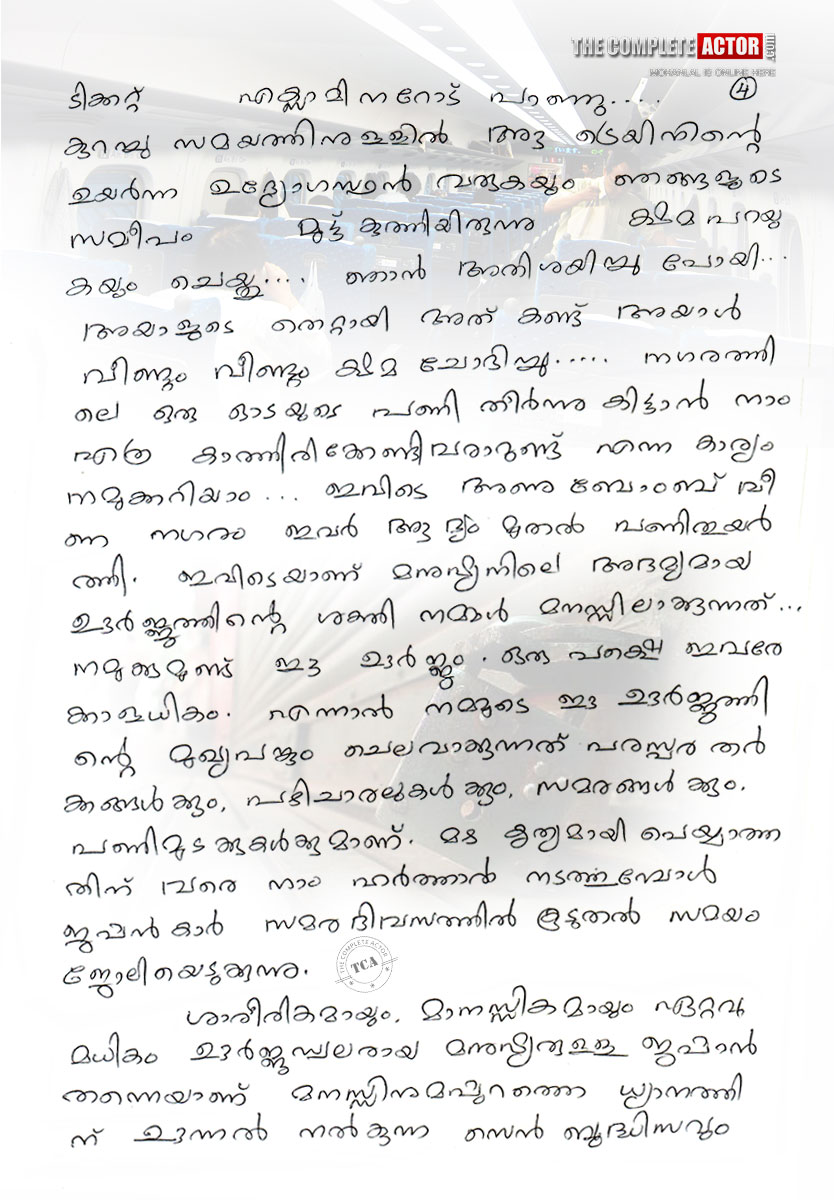 THE COMPLETE ACTOR .com
MOHANLAL IS ONLINE HERE
4
ടിക്കറ്റ് എക്സാമിനറോട് പറഞ്ഞു....
കുറച്ചു സമയത്തിനുള്ളിൽ ആ ട്രെയിനിന്റെ
ഉയർന്ന ഉദ്യോഗസ്ഥൻ വരുകയും ഞങ്ങളുടെ
സമീപം മുട്ട് കുത്തിയിരുന്നു ക്ഷമ പറയു
കയും ചെയ്തു.... ഞാൻ അതിശയിച്ചു പോയി...
അയാളുടെ തെറ്റായി അത് കണ്ട് അയാൾ
വീണ്ടും വീണ്ടും ക്ഷമ ചോദിച്ചു..... നഗരത്തി
ലെ ഒരു ഓടയുടെ പണി തീർന്നു കിട്ടാൻ നാം
എത്ര കാത്തിരിക്കേണ്ടിവരാറുണ്ട് എന്ന കാര്യം
നമുക്കറിയാം... ഇവിടെ അണു ബോംബ് വീ
ണ നഗരം ഇവർ ആദ്യം മുതൽ പണിതുയർ
ത്തി. ഇവിടെയാണ് മനുഷ്യനിലെ അദമ്യമായ
ഊർജ്ജത്തിന്റെ ശക്തി നമ്മൾ മനസ്സിലാക്കുന്നത്...
നമുക്കുമുണ്ട് ഈ ഊർജ്ജം. ഒരു പക്ഷെ ഇവരേ
ക്കാളധികം. എന്നാൽ നമ്മുടെ ഈ ഊർജ്ജത്തി
ന്റെ മുഖ്യപങ്കും ചെലവാക്കുന്നത് പരസ്പര തർ
ക്കങ്ങൾക്കും, പഴിചാരലുകൾക്കും, സമരങ്ങൾക്കും,
പണിമുടക്കുകൾക്കുമാണ്. മഴ കൃത്യമായി പെയ്യാത്ത
തിന് വരെ നാം ഹർത്താൽ നടത്തുമ്പോൾ
ജപ്പാൻകാർ സമരദിവസത്തിൽ കൂടുതൽ സമയം
ജോലിയെടുക്കുന്നു.
THE COMPLETE ACTOR
TCA
ശാരീരികമായും, മാനസ്സികമായും ഏറ്റവു
മധികം ഊർജ്ജസ്വലരായ മനുഷ്യരുള്ള ജപ്പാൻ
തന്നെയാണ് മനസ്സിനുമപ്പുറത്തെ ധ്യാനത്തി
ന് ഊന്നൽ നൽകുന്ന സെൻ ബുദ്ധിസവും